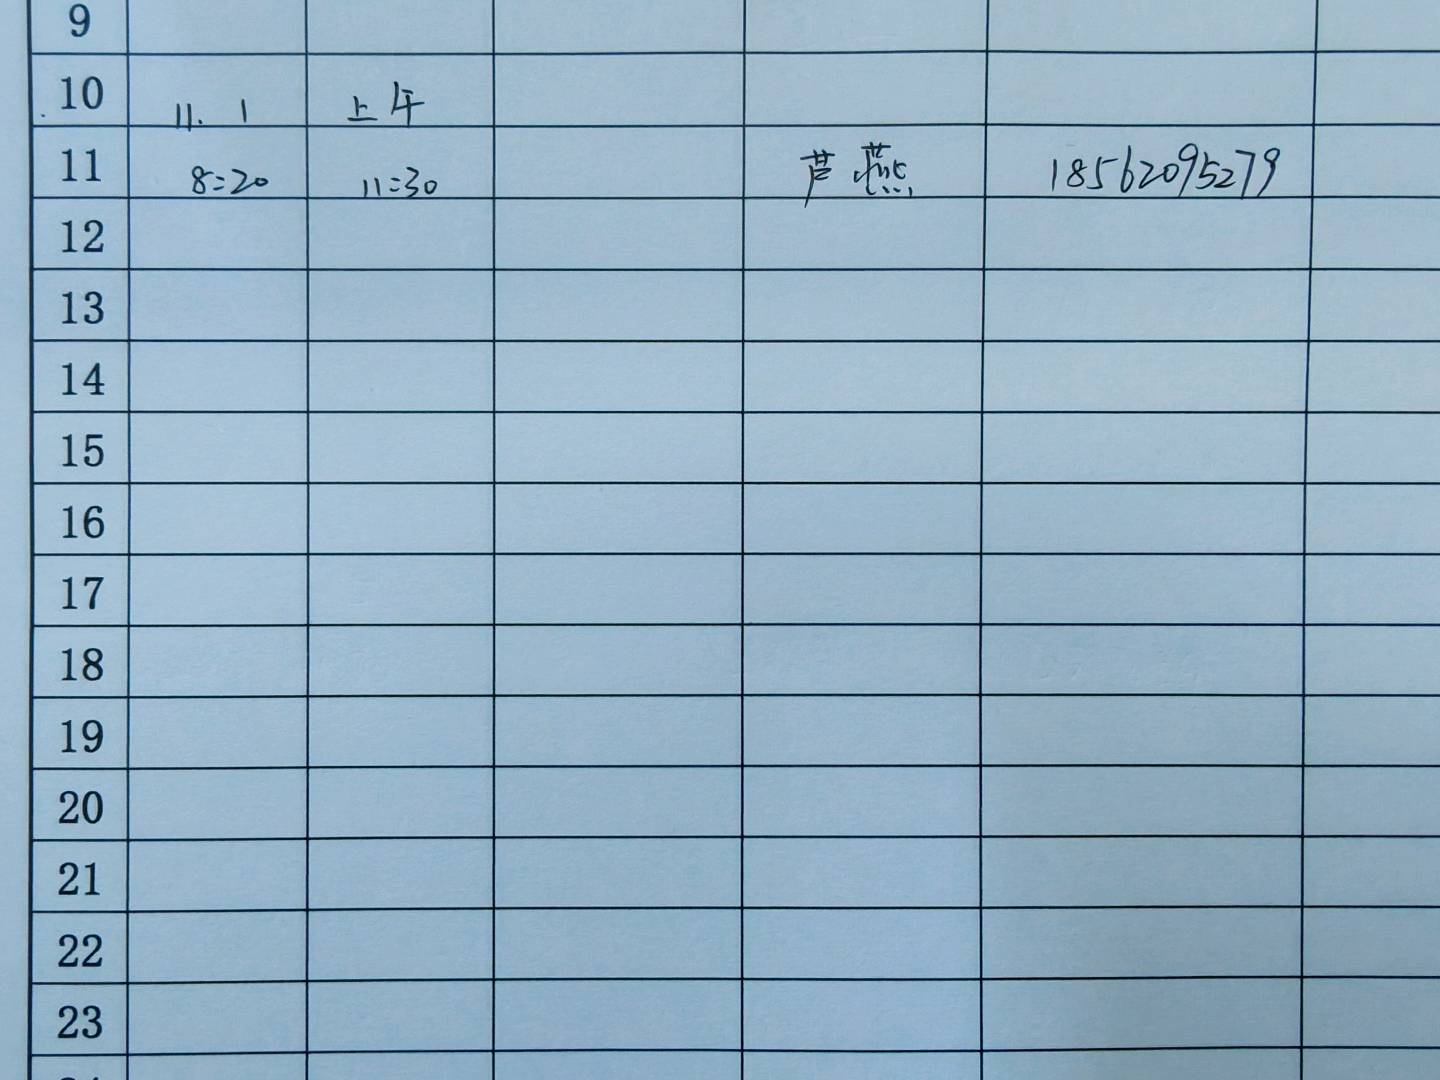 9
10 11. 1 上午
11 8:20 11:30 芦燕 18562095279
12
13
14
15
16
17
18
19
20
21
22
23